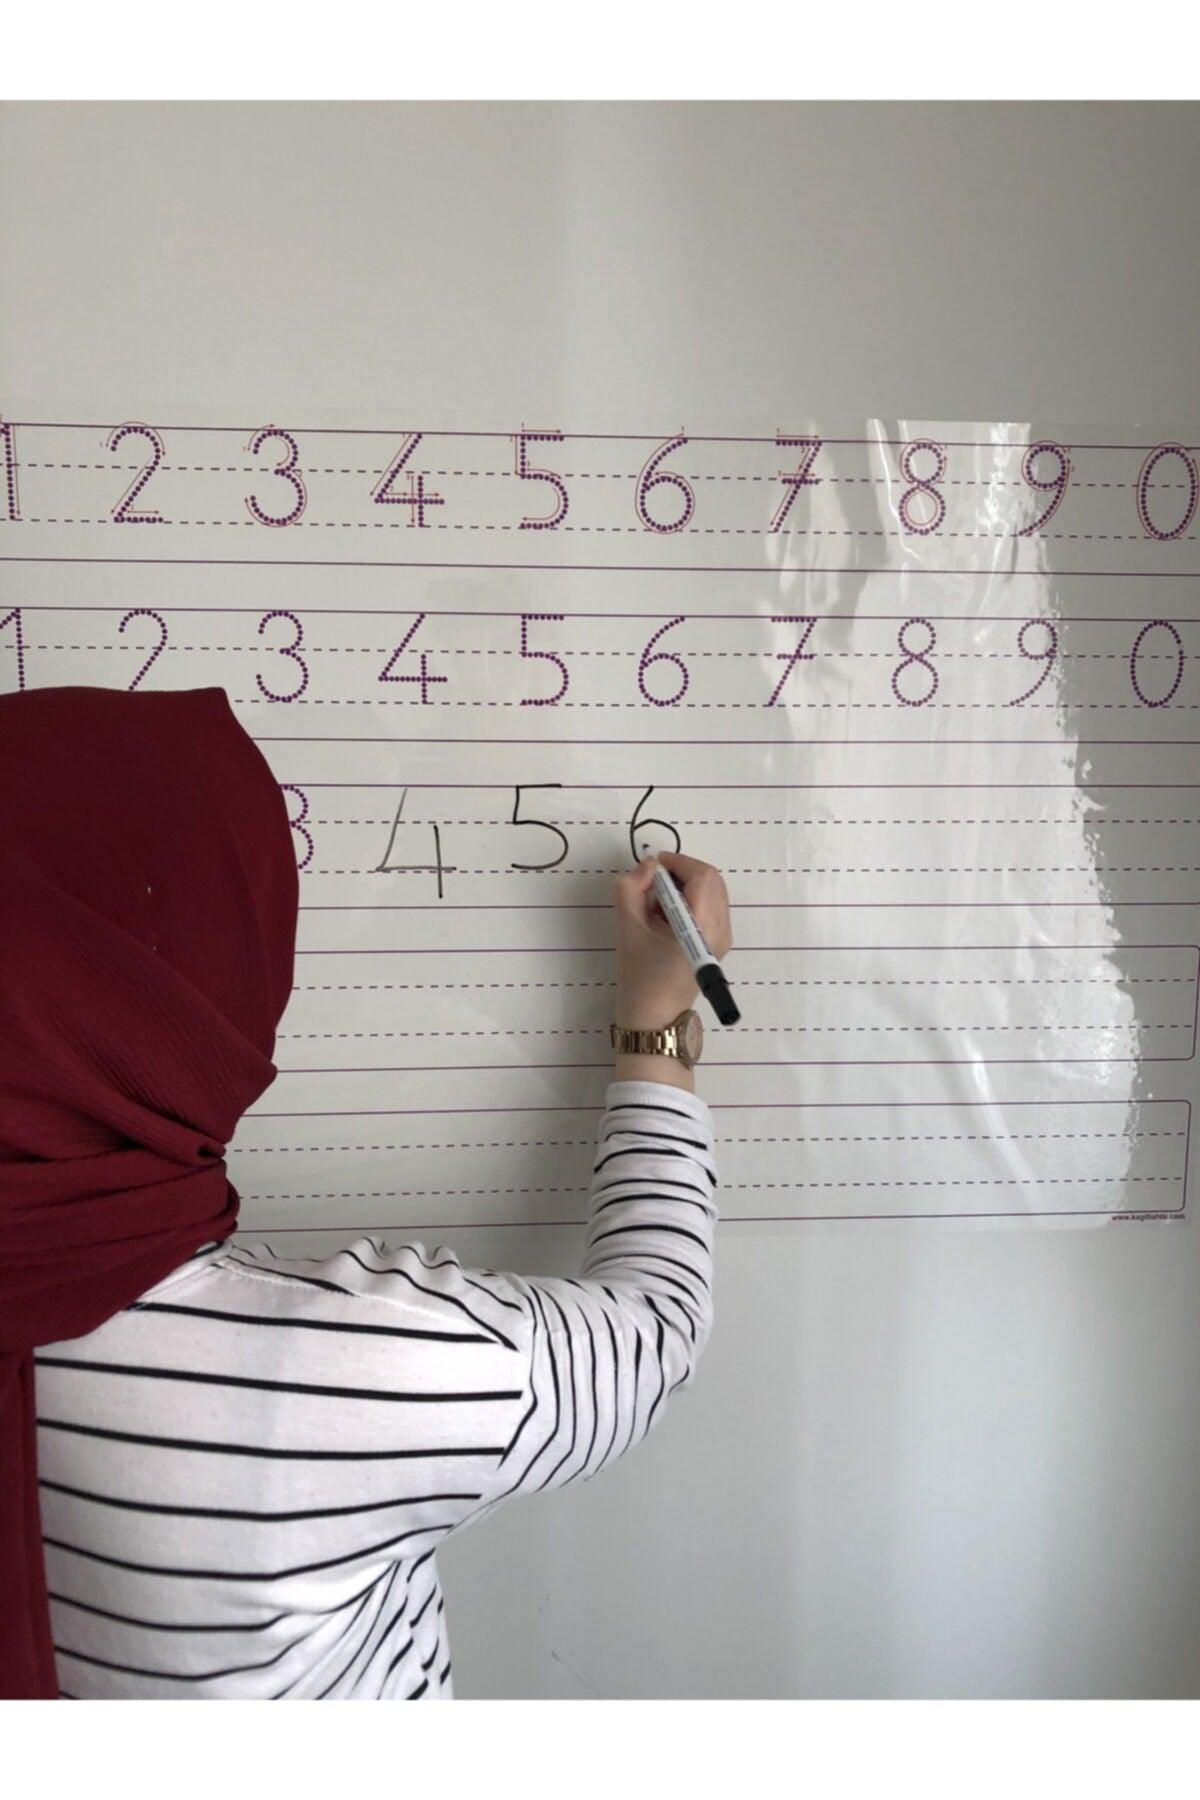 1 2 3 4 5 6 7 8 9 0
1 2 3 4 5 6 7 8 9 0
3 4 5 6
www.kagittahta.com